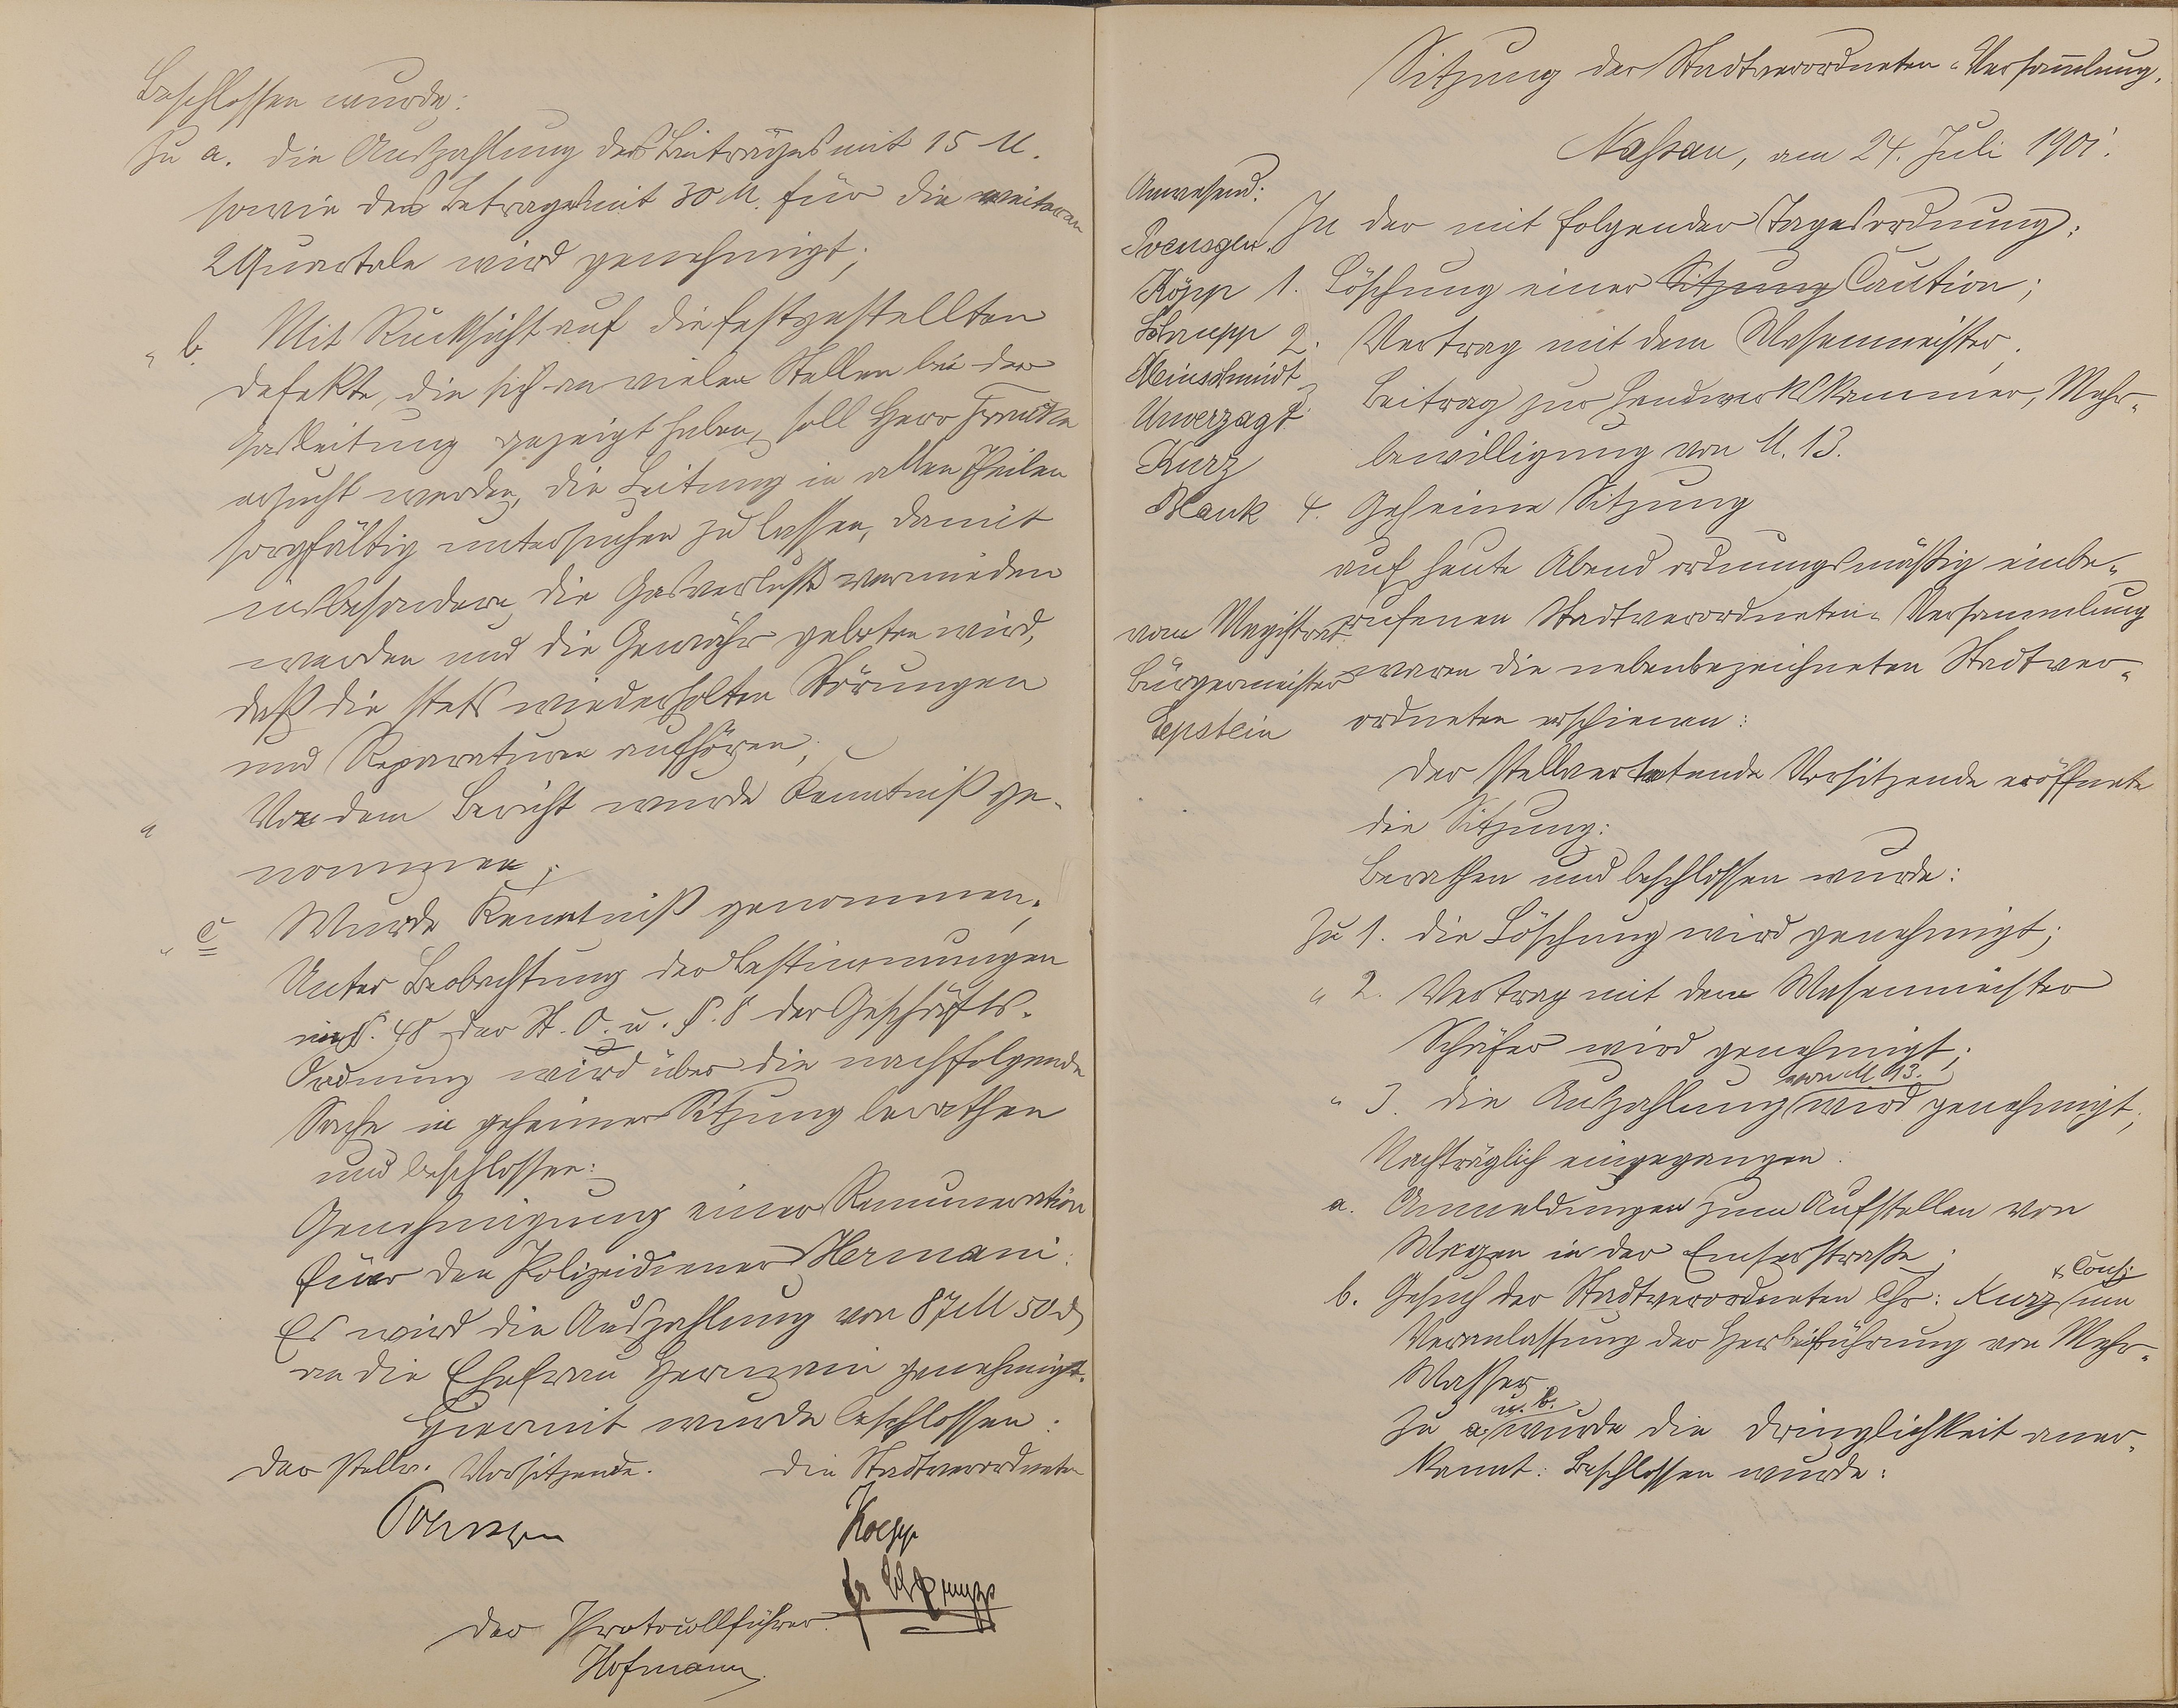 Beschlossen wurde:
Zu a. die Auszahlung des Beitrages mit 15 M.
sowie des Betrages mit 30 M. für die weiteren
2 Quartale wird genehmigt;
" b. Mit Rücksicht auf die festgestellten
Defekte, die sich an vielen Stellen bei der
Gasleitung gezeigt haben, soll Herr Francke
ersucht werden, die Leitung in allen Theilen
sorgfältig untersuchen zu lassen, damit
insbesondere die Gasverluste vermieden
werden und die Gewähr geboten wird,
daß die stets wiederholten Störungen
und Reparaturen aufhören;
" Von dem Bericht wurde Kenntniß ge-
nommen;
" c Wurde Kenntniß genommen.
Unter Beobachtung der Bestimmungen
in §. 48 der St. O. u. §. 8 der Geschäfts-
Ordnung wird über die nachfolgende
Sache in geheimer Sitzung berathen
und beschlossen:
Genehmigung einer Remuneration
für den Polizeidiener Hermani:
Es wird die Auszahlung von 87 M 50 d
an die Ehefrau Hermani genehmigt.
Hiermit wurde beschlossen:
Der stellv. Vorsitzende. Die Stadtverordneten
Poensgen Koepp
Schrupp
Der Protocollführer.
Hofmann
Sitzung der Stadtverordneten-Versammlung.
Nassau, am 24. Juli 1901.
Anwesend:
Poensgen
Köpp
Schrupp
Meinschmidt
Unverzagt
Kurz
Blank
vom Magistrat
Bürgermeister
Epstein
In der mit folgender Tagesordnung:
1. Löschung einer Sitzung Caution;
2. Vertrag mit dem Wasenmeister.
3 Beitrag zur Handwerkskammer, Mehr-
bewilligung von M. 13.
4. Geheime Sitzung
auf heute Abend ordnungsmäßig einbe-
rufenen Stadtverordneten-Versammlung
waren die nebenbezeichneten Stadtver-
ordneten erschienen:
Der stellvertretende Vorsitzende eröffnete
die Sitzung:
Berathen und beschlossen wurde:
Zu 1. die Löschung wird genehmigt;
" 2. Vertrag mit dem Wasenmeister
Schäfer wird genehmigt;
" 3. die Auszahlung von M 13. wird genehmigt;
Nachträglich eingegangen:
a. Anmeldungen zum Aufstellen von
Wagen in der Emserstraße;
b. Gesuch der Stadtverordneten Chr: Kurz & Cons: um
Veranlassung der Herbeiführung von Mehr-
Wasser
Zu a u. b. wurde die Dringlichkeit aner-
kannt: Beschlossen wurde: